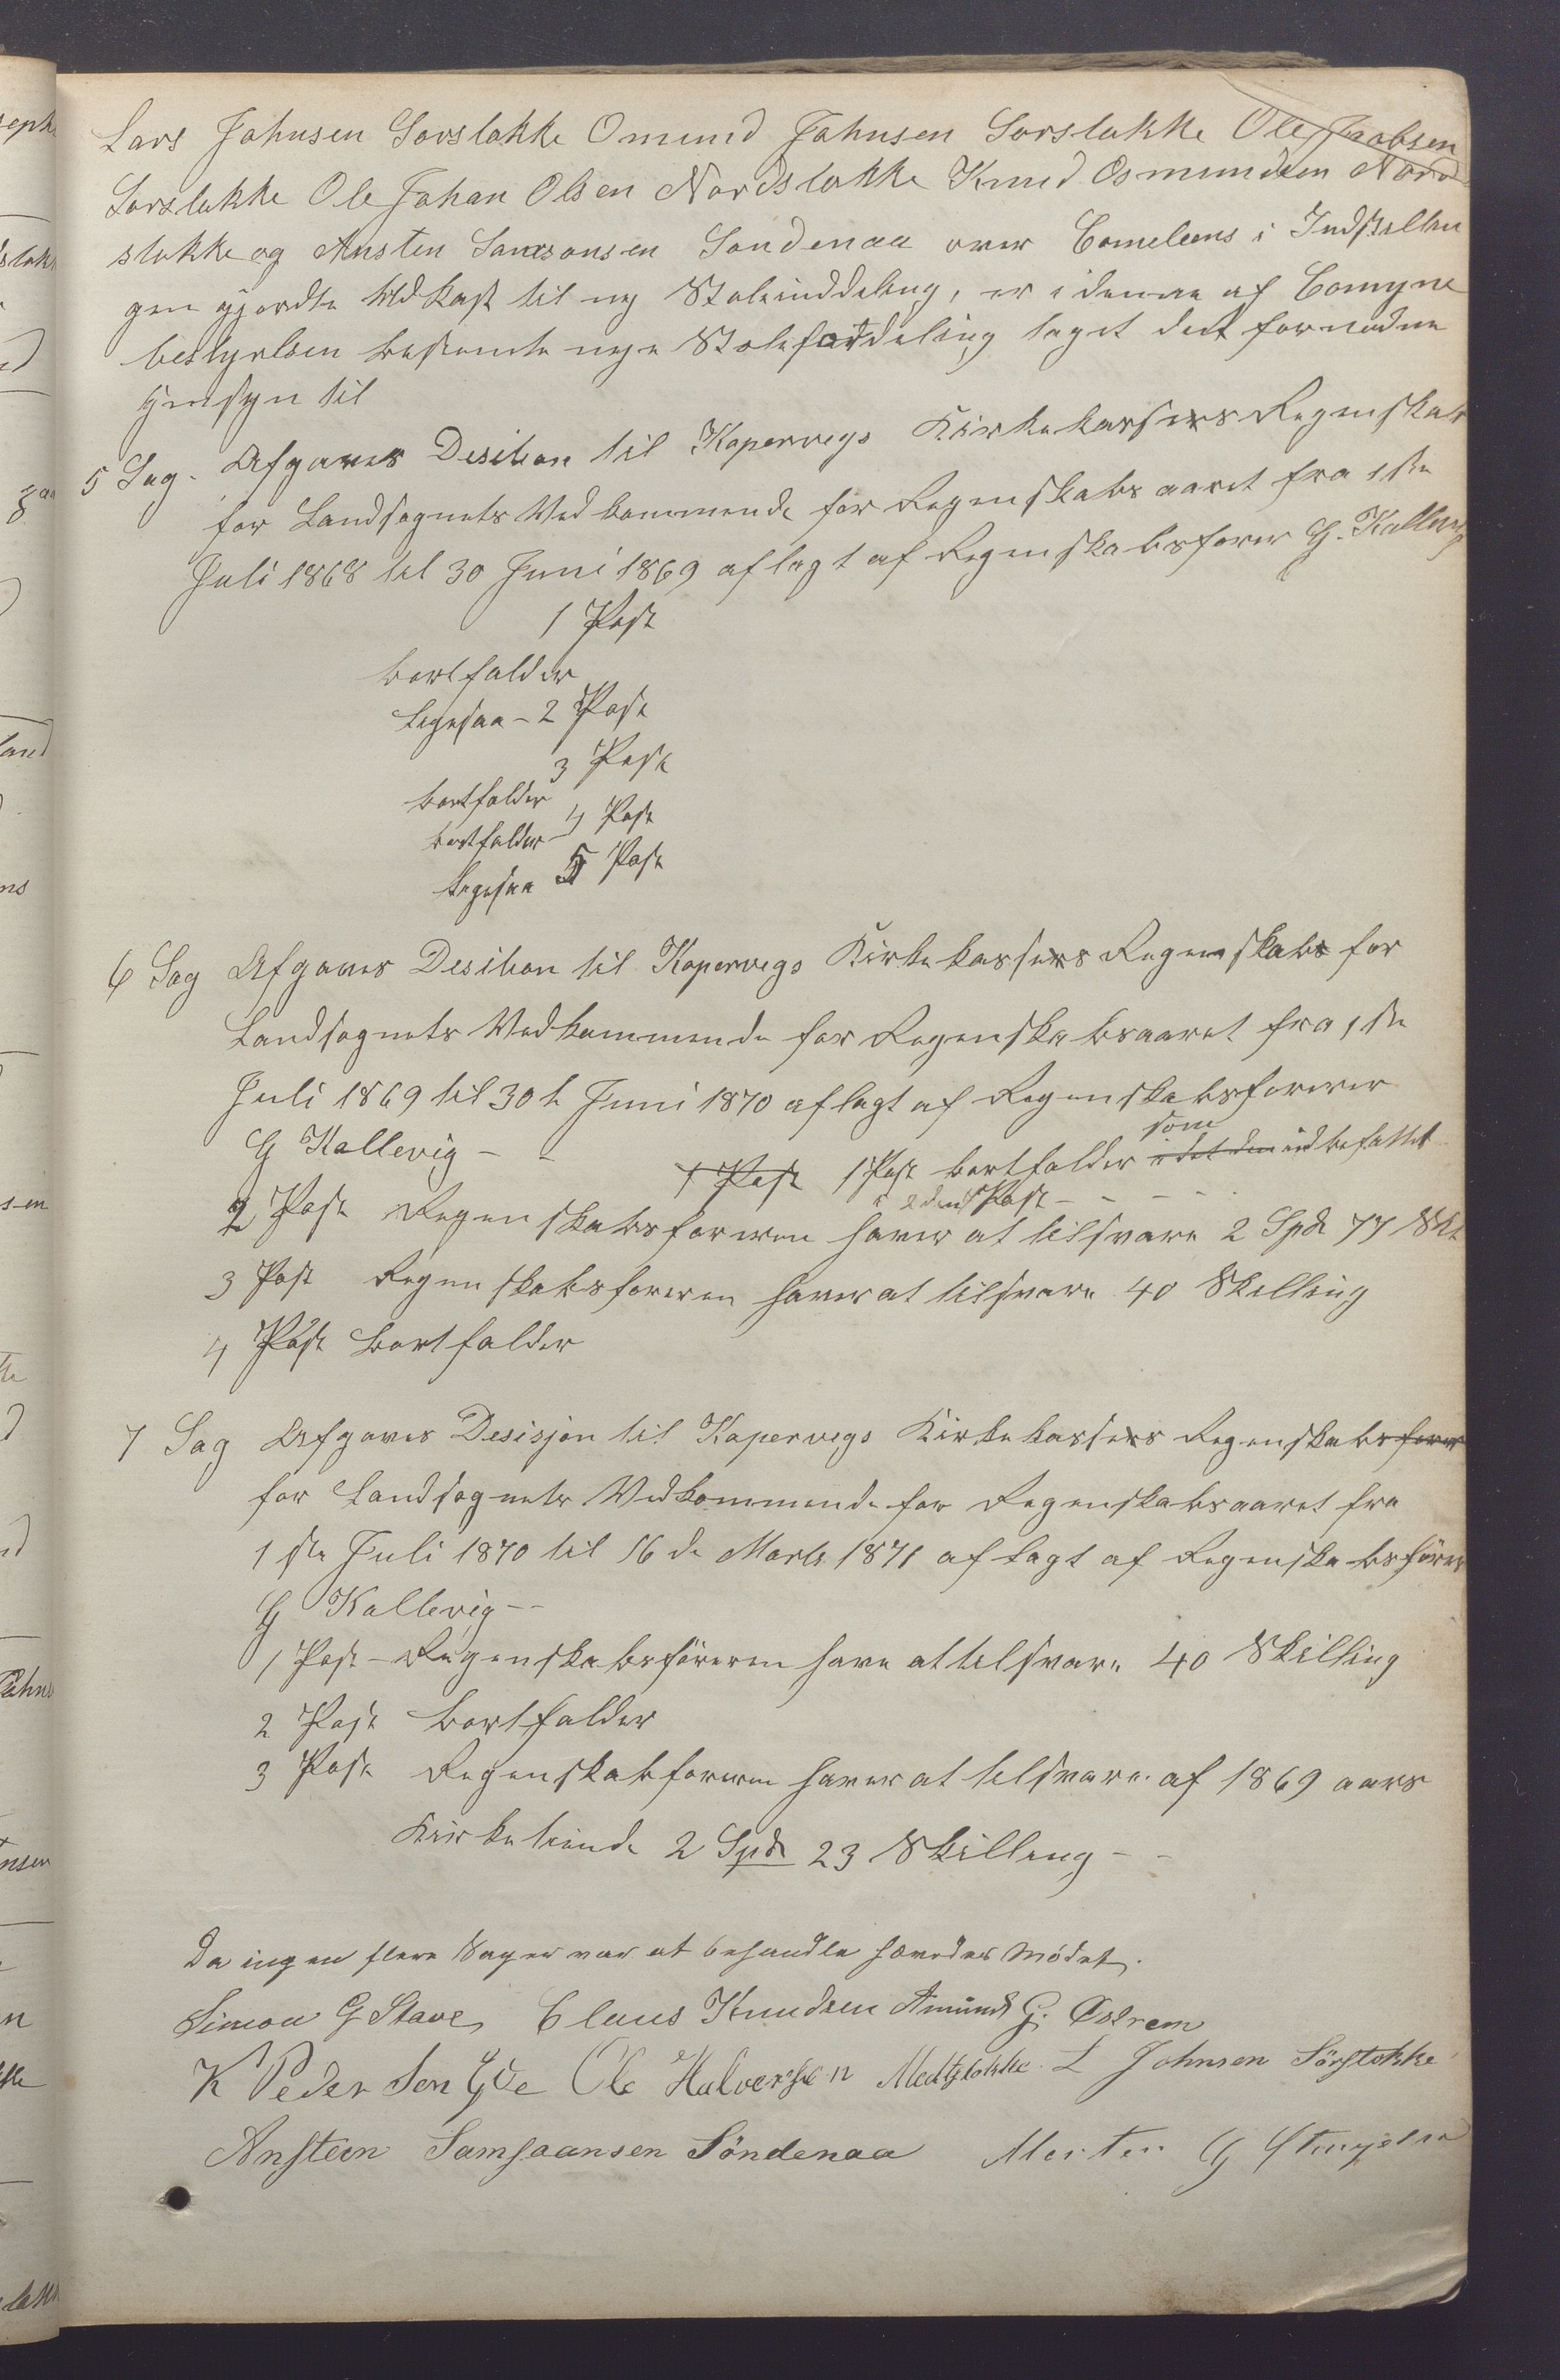 Lars Johnsen Sørstokke Omund Johnsen Sørstokke Ole Jacobsen
Sørstokke Ole Johan Olsen Nordstokke Knud Osmundsen Nord
stokke og Ansten Samsonsen Søndenaa over Cometeens i Indstillin
gen gjordte Udkast til ny Stoleinddeling, er i denne af Comyne
bestyrelsen bestemte nye Stolefordeling taget det fornødne
Hensyn til
5 Sag. Afgaves Desision til Kopervigs Kirkekasses Regenskab
for Landsognets Vedkommende for Regenskabsaaret fra 1ste
Juli 1868 til 30 Juni 1869 aflagt af Regenskabsfører G. Kallevig
1 Post
bortfalder
Ligesaa - 2 Post
3 Post
bortfalder
bortfalder 4 Post
Ligesaa 5 Post
6 Sag Afgaves Desision til Kopervigs Kirkekasses Regenskab for
Landsognets Vedkommende for Regenskabsaaret fra 1ste
Juli 1869 til 30te Juni 1870 aflagt af Regenskabsfører
som
G Kallevig - - 1 Post 1 Post bortfalder idet den indbefattet
i 2den Post - - - -
2 Post Regenskabsføreren haver at tilsvare 2 Spd 77 Sk
3 Post Regenskabsføreren haver at tilsvare 40 Skilling
4 Post bortfalder
7 Sag Afgaves Desisjon til Kopervigs Kirkekasses Regenskabsfører
for Landsognets Vedkommende for Regenskabsaaret fra
1ste Juli 1870 til 16de Marts 1871 aflagt af Regenskabsfører
G Kallevig --
1 Post - Regenskabsføreren have at tilsvare 40 Skilling
2 Post bortfalder
3 Post Regenskabføreren haver at tilsvare af 1869 aars
Kirketiende 2 Spd 23 Skilling - -
Da ingen flere Sager var at behandle hævedes Mödet.
Simon G Stave Claus Knudsen Amund G. Østrem
K Peder Sen Eide Ole Halversen Medtstokke L Johnsen Sörstokke
Anstein Samsaansen Söndenaa Morten G